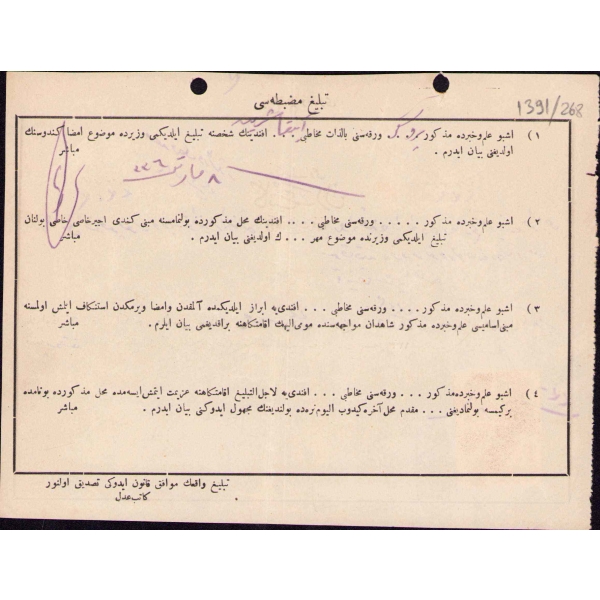 تبليغ مضبطه‌سی
1391/268
۱) اشبو علم‌وخبرده مذكور ورقه‌سنی بالذات مخاطبی . . . افندينك شخصنه تبليغ ايلديكمی وزيرده موضوع امضا كندوسنك
اولديغنی بيان ايدرم . مباشر
۸ مارت ۳۳٦
۲) اشبو علم‌وخبرده مذكور . . . . . ورقه‌سنی مخاطبی . . . . افندينك محل مذكورده بولنمامسنه مبنی كندی اجيرخاصی خاطی بولنان
تبليغ ايلديكمی وزيرنده موضوع مهر . . . ك اولديغنی بيان ايدرم . مباشر
۳) اشبو علم‌وخبرده مذكور . . . . ورقه‌سنی مخاطبی . . . افندی‌يه ابراز ايلديكمده آلمقدن وامضا ويرمكدن استنكاف ايتمش اولمسنه
مبنی اساميسی علم‌وخبرده مذكور شاهدان مواجهه‌سنده مومی‌اليهك اقامتكاهنه براقديغمی بيان ايلرم . مباشر
٤) اشبو علم‌وخبرده مذكور . . . ورقه‌سنی مخاطبی . . . افندی‌يه لاجل‌التبليغ اقامتكاهنه عزيمت ايتمش ايسه‌مده محل مذكورده بونامده
بركيمسه بولنماديغنی . . . مقدم محل آخره كيدوب اليوم نره‌ده بولنديغنك مجهول ايدوكنی بيان ايدرم . مباشر
تبليغ واقعك موافق قانون ايدوكی تصديق اولنور
كاتب‌عدل